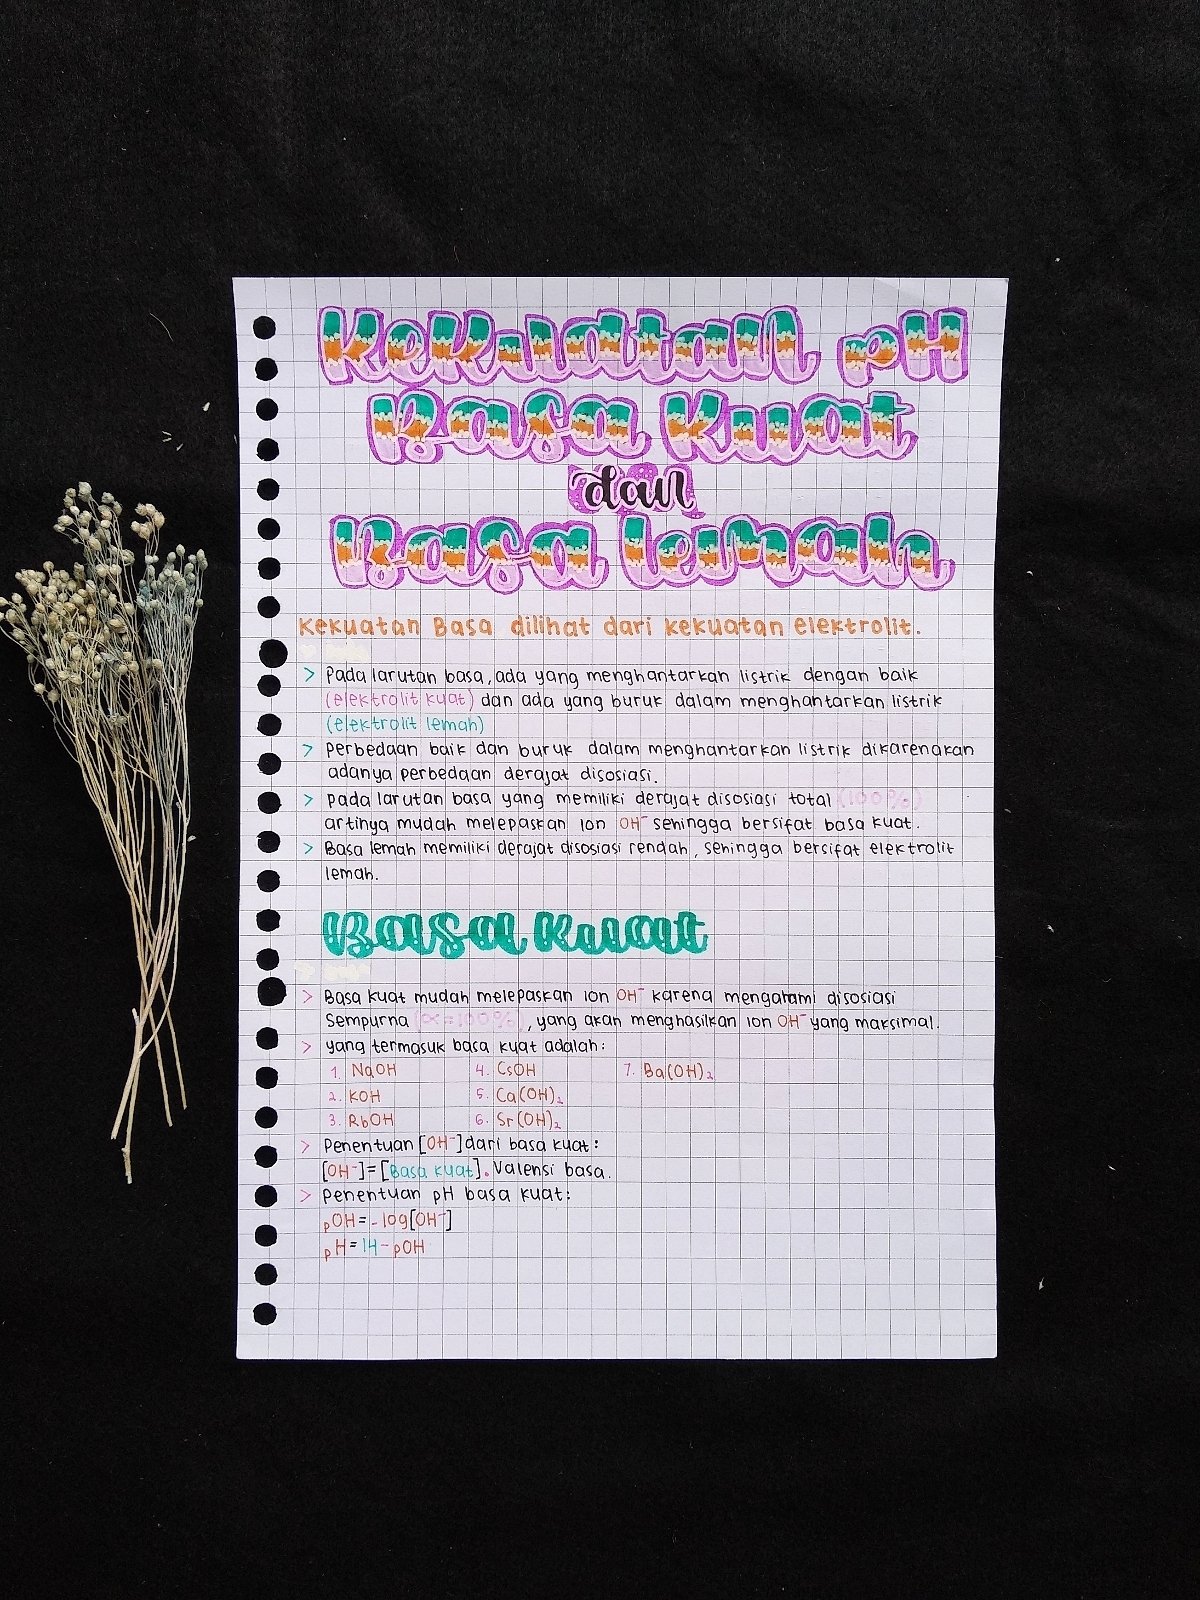 Kekuatan pH
Basa Kuat
dan
Basa lemah
Kekuatan Basa dilihat dari kekuatan elektrolit.
> Pada larutan basa, ada yang menghantarkan listrik dengan baik
(elektrolit kuat) dan ada yang buruk dalam menghantarkan listrik
(elektrolit lemah)
> Perbedaan baik dan buruk dalam menghantarkan listrik dikarenakan
adanya perbedaan derajat disosiasi.
> Pada larutan basa yang memiliki derajat disosiasi total (100%)
artinya mudah melepaskan ion OH⁻ sehingga bersifat basa kuat.
> Basa lemah memiliki derajat disosiasi rendah, sehingga bersifat elektrolit
lemah.
Basa Kuat
> Basa kuat mudah melepaskan ion OH⁻ karena mengalami disosiasi
Sempurna (α=100%), yang akan menghasilkan ion OH⁻ yang maksimal.
> yang termasuk basa kuat adalah:
1. NaOH 4. CsOH 7. Ba(OH)₂
2. KOH 5. Ca(OH)₂
3. RbOH 6. Sr(OH)₂
> Penentuan [OH⁻] dari basa kuat:
[OH⁻]=[Basa kuat]. Valensi basa.
> Penentuan pH basa kuat:
pOH=-log[OH⁻]
pH=14-pOH